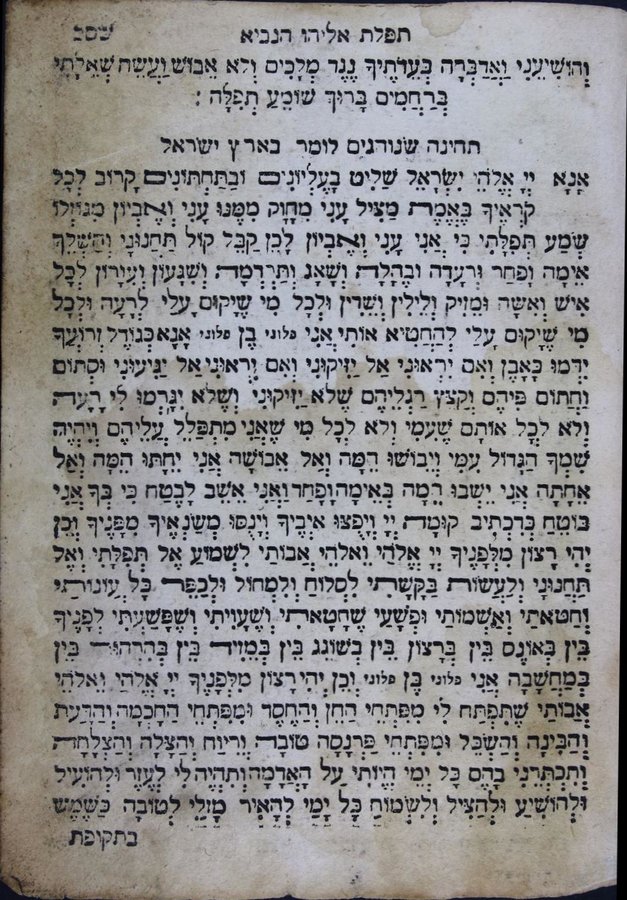 תפלת אליהו הנביא עסב
וְהוֹשִׁיעֵנִי וַאֲדַבְּרָה בְּעֵדֹתֶיךָ נֶגֶד מְלָכִים וְלֹא אֵבוֹשׁ וַעֲשֵׂה שְׁאֵלָתִי
בְּרַחֲמִים בָּרוּךְ שׁוֹמֵעַ תְּפִלָּה :
תחינה שנוהגים לומר בארץ ישראל
אָנָא יְיָ אֱלֹהֵי יִשְׂרָאֵל שַׁלִּיט בָּעֶלְיוֹנִים וּבַתַּחְתּוֹנִים קָרוֹב לְכָל
קֹרְאֶיךָ בֶּאֱמֶת מַצִּיל עָנִי מֵחָזָק מִמֶּנּוּ עָנִי וְאֶבְיוֹן מִגּוֹזְלוֹ
שְׁמַע תְּפִלָּתִי כִּי אֲנִי עָנִי וְאֶבְיוֹן לָכֵן קַבֵּל קוֹל תַּחֲנוּנַי וְהַשְׁלֵךְ
אֵימָה וָפַחַד וּרְעָדָה וּבֶהָלָה וְשָׁאָג וְתַרְדֵּמָה וְשִׁגָּעוֹן וְעִוָּרוֹן לְכָל
אִישׁ וְאִשָּׁה וּמַזִּיק וְלִילִין וְשֵׁדִין וּלְכָל מִי שֶׁיָּקוּם עָלַי לְרָעָה וּלְכָל
מִי שֶׁיָּקוּם עָלַי לְהַחֲטִיא אוֹתִי אֲנִי פלוני בֶּן פלוני אָנָא כְּגוֹדֶל זְרוֹעֲךָ
יִדְּמוּ כָּאָבֶן וְאִם יִרְאוּנִי אַל יַזִּיקוּנִי וְאִם יִרְאוּנִי אַל יַגִּיעוּנִי וּסְתוֹם
וַחֲתוֹם פִּיהֶם וְקַצֵּץ רַגְלֵיהֶם שֶׁלֹּא יַזִּיקוּנִי וְשֶׁלֹּא יִגְרְמוּ לִי רָעָה
וְלֹא לְכָל אוֹתָם שֶׁעִמִּי וְלֹא לְכָל מִי שֶׁאֲנִי מִתְפַּלֵּל עֲלֵיהֶם וְיִהְיֶה
שִׁמְךָ הַגָּדוֹל עִמִּי וְיֵבוֹשׁוּ הֵמָּה וְאַל אֵבוֹשָׁה אֲנִי יֵחַתּוּ הֵמָּה וְאַל
אֵחַתָּה אֲנִי יֵשְׁבוּ הֵמָּה בְּאֵימָה וָפַחַד וַאֲנִי אֵשֵׁב לָבֶטַח כִּי בְּךָ אֲנִי
בּוֹטֵחַ כְּדִכְתִיב קוּמָה יְיָ וְיָפֻצוּ אֹיְבֶיךָ וְיָנֻסוּ מְשַׂנְאֶיךָ מִפָּנֶיךָ וְכֵן
יְהִי רָצוֹן מִלְּפָנֶיךָ יְיָ אֱלֹהַי וֵאלֹהֵי אֲבוֹתַי לִשְׁמוֹעַ אֶל תְּפִלָּתִי וְאֶל
תַּחֲנוּנַי וְלַעֲשׂוֹת בַּקָּשָׁתִי לִסְלוֹחַ וְלִמְחוֹל וּלְכַפֵּר כָּל עֲוֹנוֹתַי
וְחַטֹּאתַי וְאַשְׁמוֹתַי וּפְשָׁעַי שֶׁחָטָאתִי וְשֶׁעָוִיתִי וְשֶׁפָּשַׁעְתִּי לְפָנֶיךָ
בֵּין בְּאוֹנֶס בֵּין בְּרָצוֹן בֵּין בְּשׁוֹגֵג בֵּין בְּמֵזִיד בֵּין בְּהִרְהוּר בֵּין
בְּמַחֲשָׁבָה אֲנִי פלוני בֶּן פלוני וְכֵן יְהִי רָצוֹן מִלְּפָנֶיךָ יְיָ אֱלֹהַי וֵאלֹהֵי
אֲבוֹתַי שֶׁתִּפְתַּח לִי מִפְתְּחֵי הַחֵן וְהַחֶסֶד וּמִפְתְּחֵי הַחָכְמָה וְהַדַּעַת
וְהַבִּינָה וְהַשְׂכֵּל וּמִפְתְּחֵי פַּרְנָסָה טוֹבָה וְרֵיוַח וְהַצָּלָה וְהַצְלָחָה
וְתַכְתְּרֵנִי בָּהֶם כָּל יְמֵי הֱיוֹתִי עַל הָאֲדָמָה וְתִהְיֶה לִי לְעֵזֶר וּלְהוֹעִיל
וּלְהוֹשִׁיעַ וּלְהַצִּיל וְלִשְׂמוֹחַ כָּל יָמַי לְהָאִיר מַזָּלִי לְטוֹבָה כַּשֶּׁמֶשׁ
בתקופת